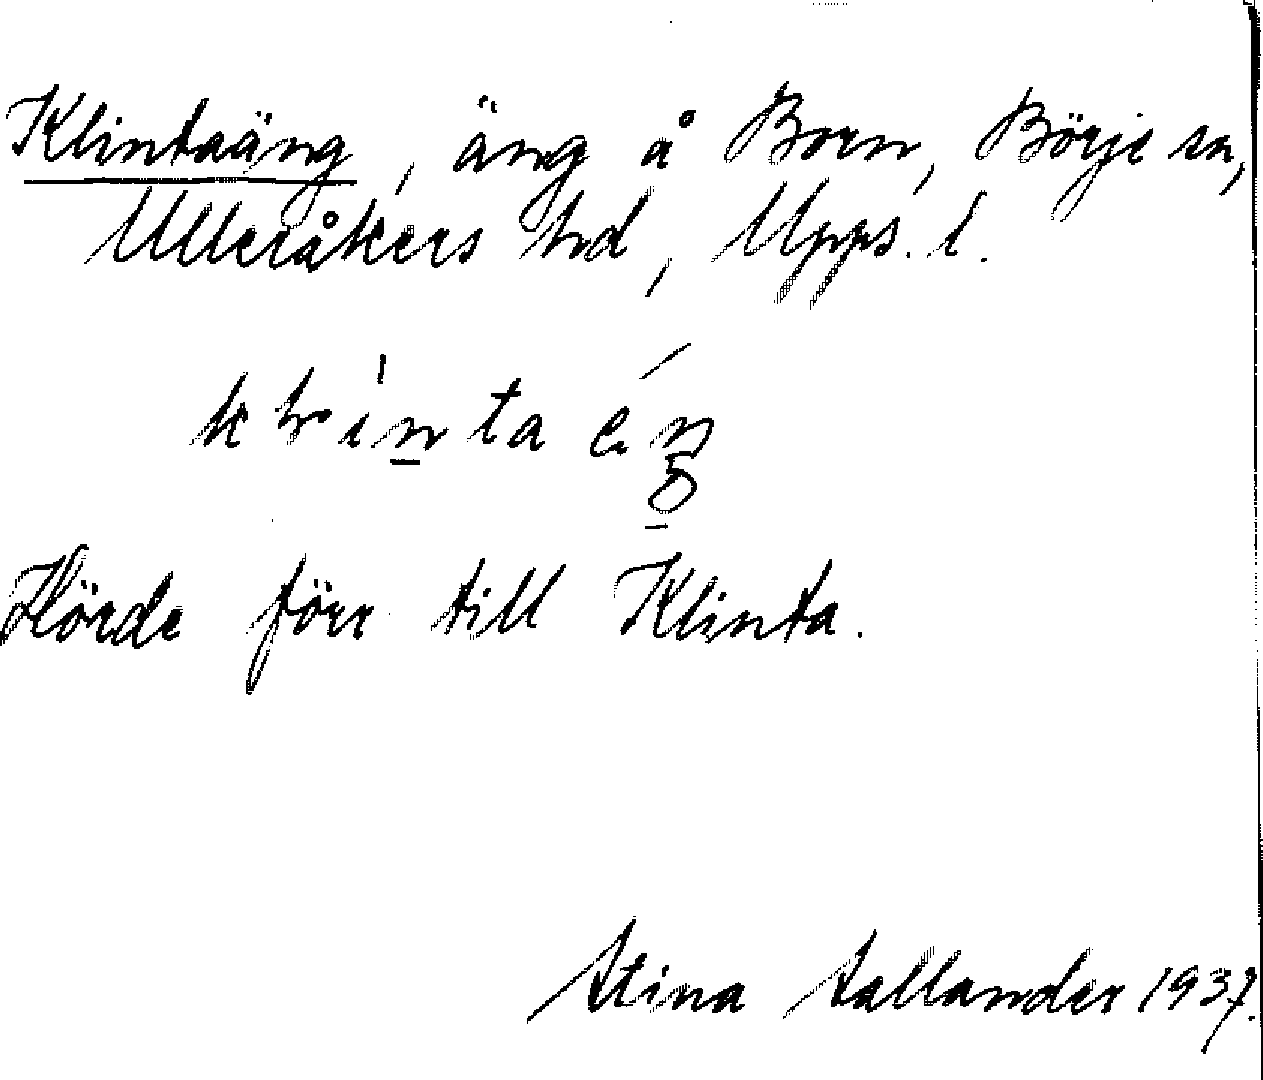 Klintaäng, äng å Born, Börje sn,
Ulleråkers hd, Upps. l.
Hörde förr till Klinta.
Stina 1937.